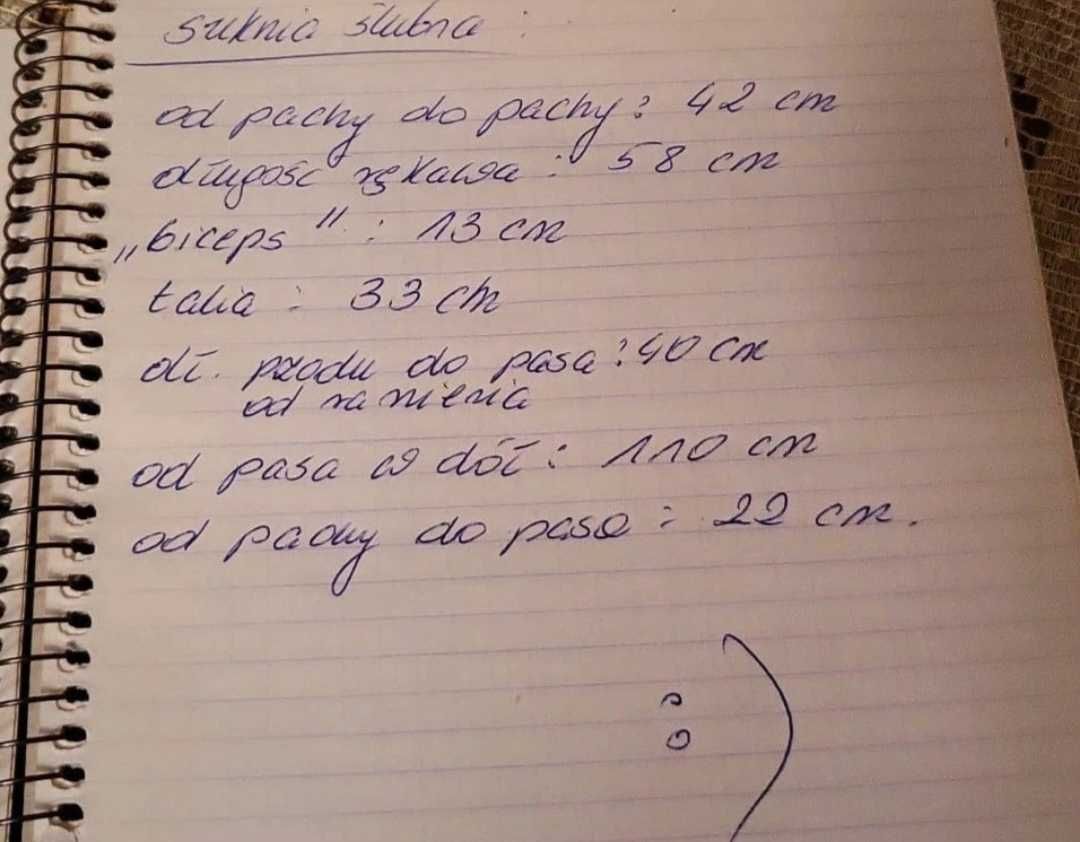 suknia ślubna :
od pachy do pachy : 42 cm
długość rękawa : 58 cm
„biceps” : 13 cm
talia : 33 cm
dł. przodu do pasa : 40 cm
od ramienia
od pasa w dół : 110 cm
od pachy do pasa : 22 cm.
:)